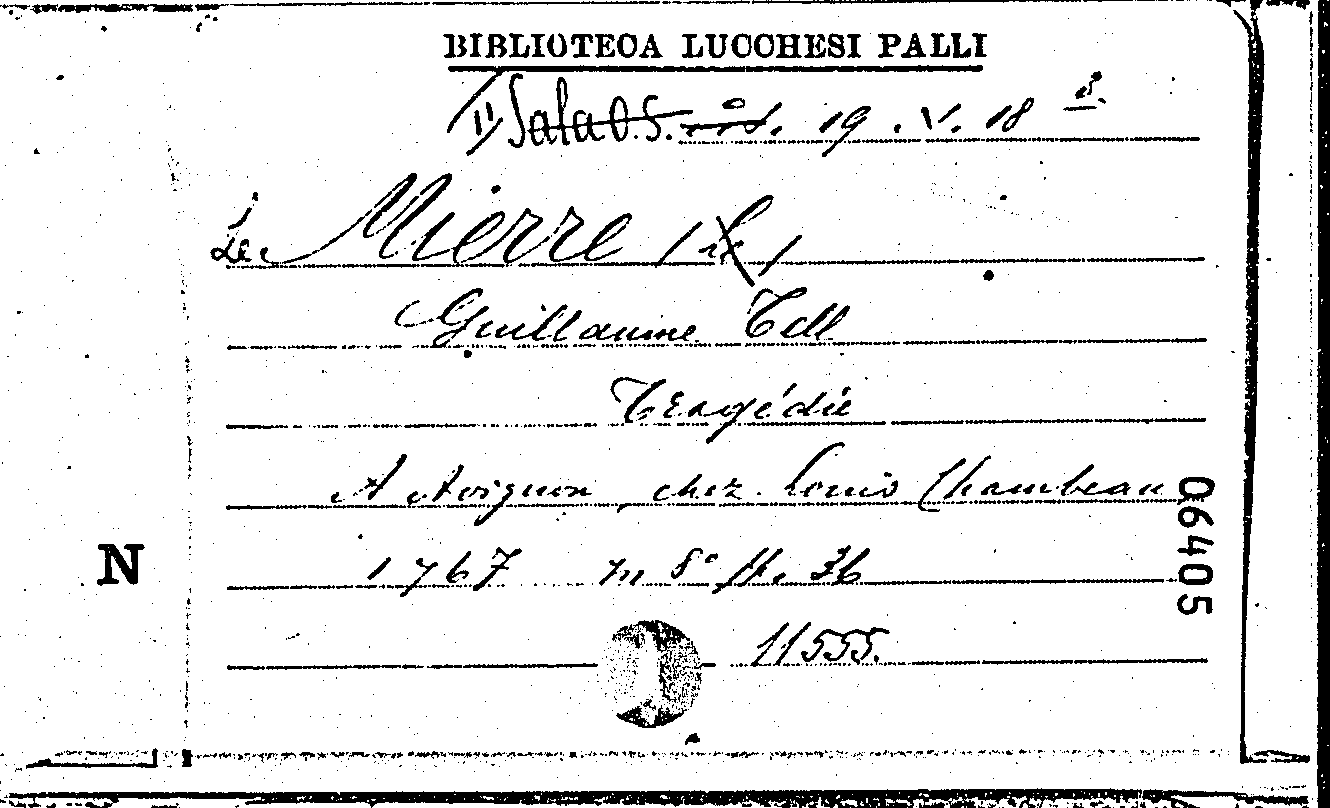 BIBLIOTECA LUCCHESI PALLI
II Sala O.S. 19. V. 18
Le Mierre (Le)
Guillaume Tell
Tragédie
A Avignon, chez Louis Chambeau,
1767 in 8° pp. 36
06405
N
11555.